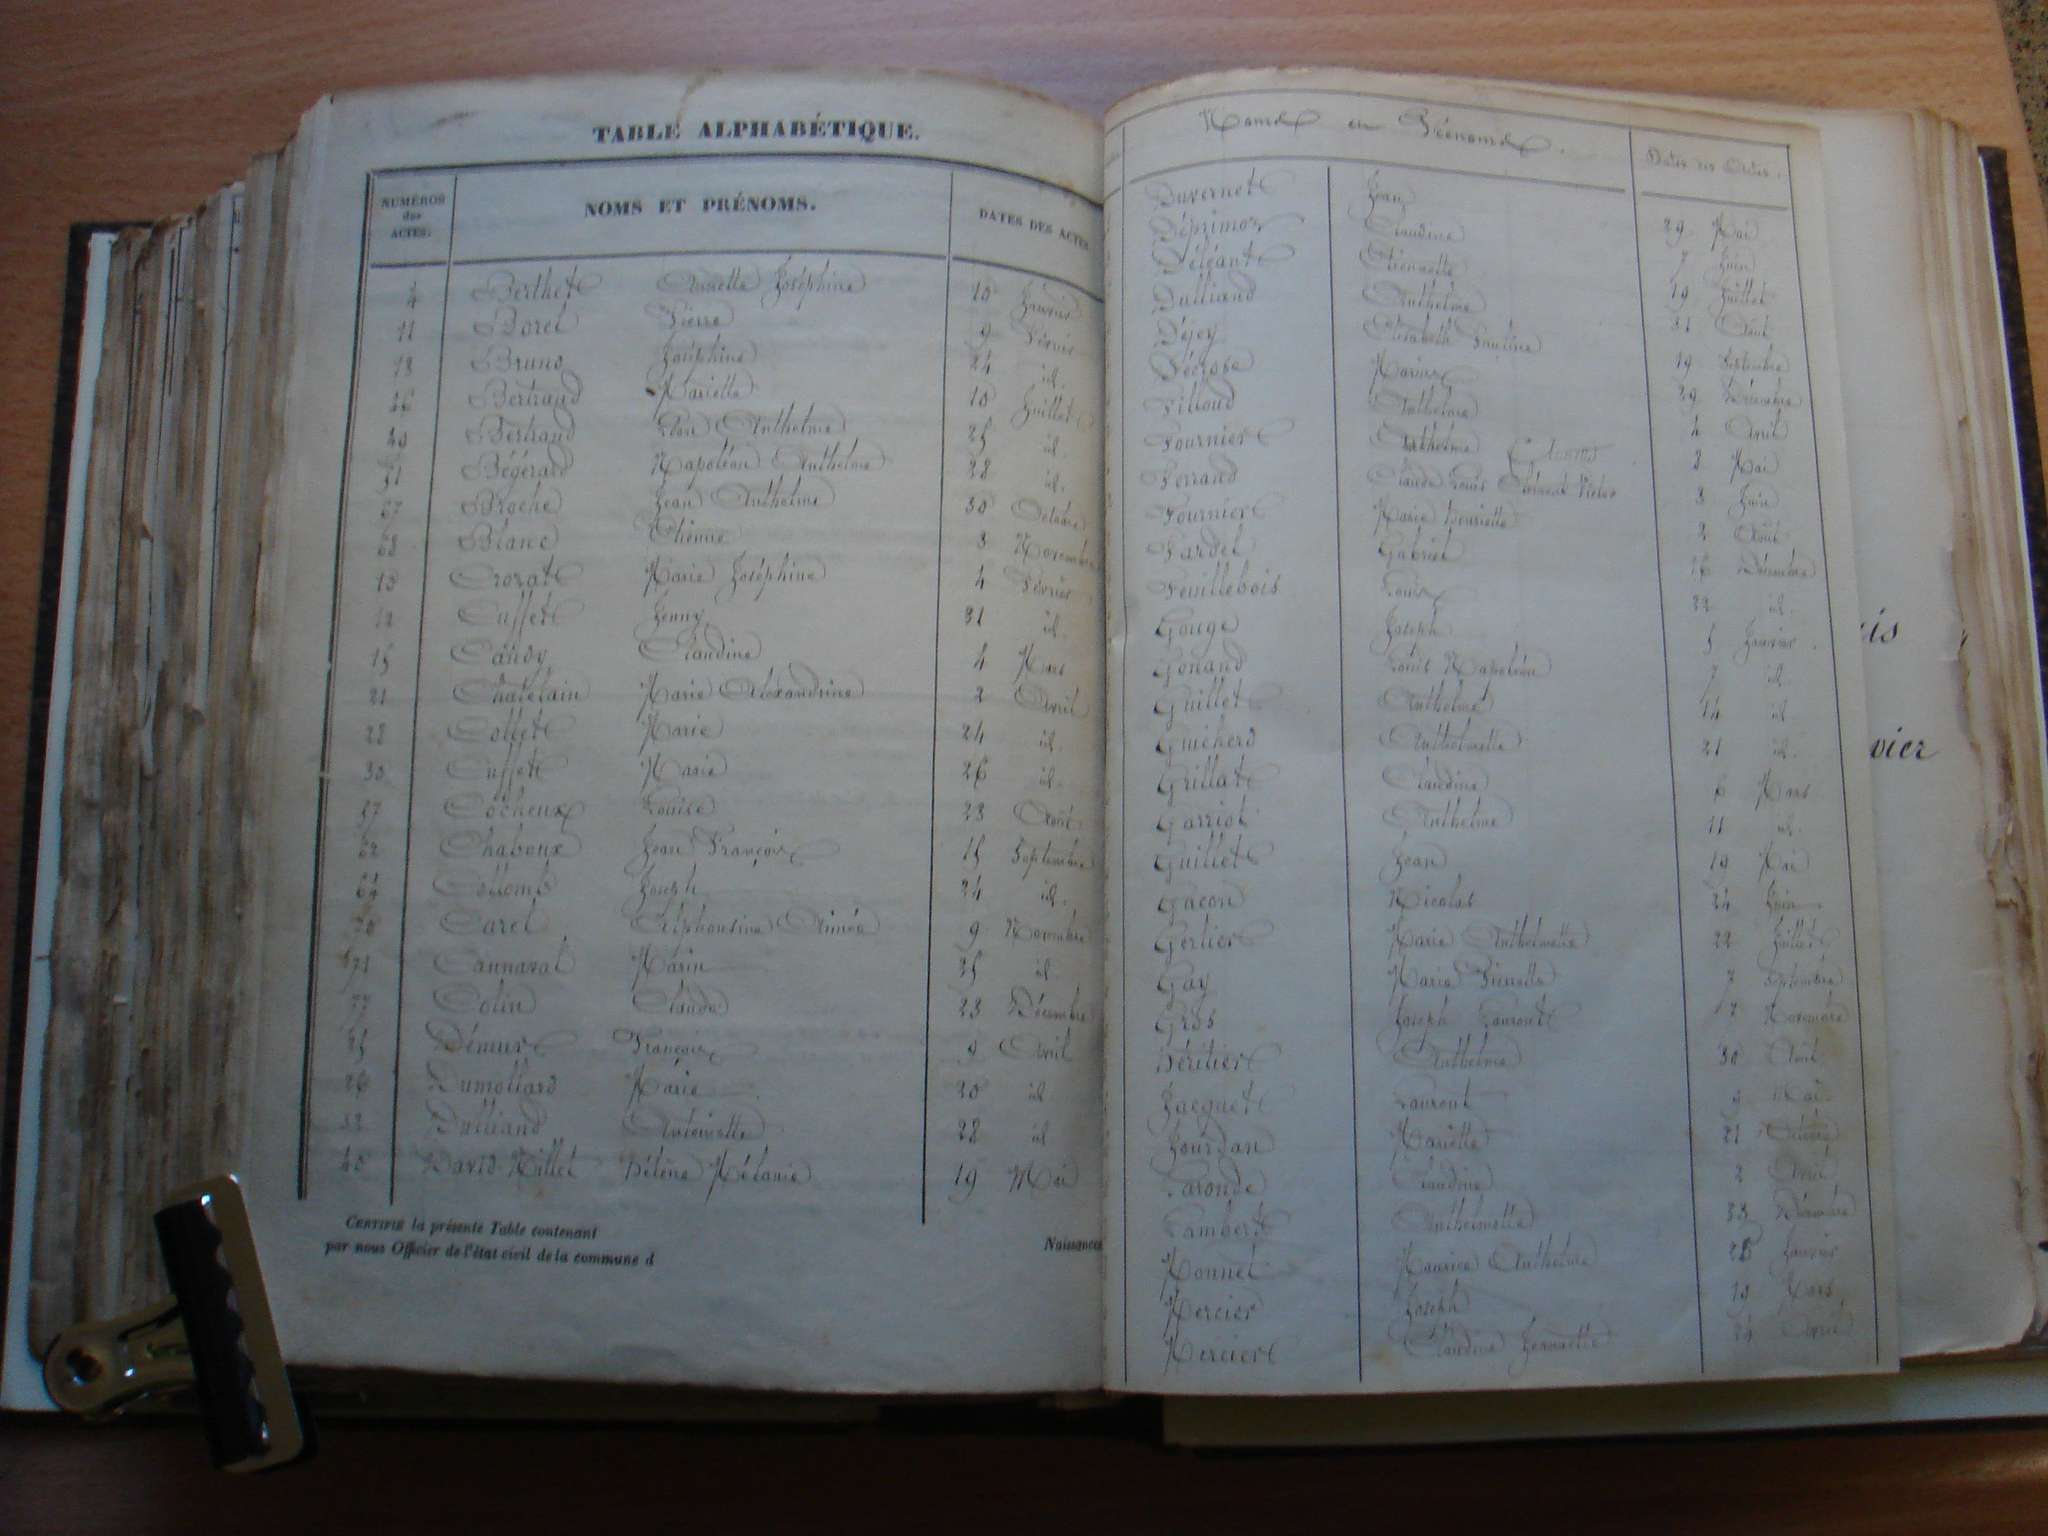 TABLE ALPHABÉTIQUE.
NUMÉROS des ACTES. NOMS ET PRÉNOMS. DATES DES ACTES
Berthet Josephine 10 Janvier
11 Borel Pierre 9 Février
13 Bruno Joséphine 24 id.
Bertrand Mariette 10 Juillet
Bertrand Anthelme 25 id.
Bégérard Napoléon Anthelme 28 id.
Broche Jean Anthelme 30 Octobre
Blanc Etienne 3 Novembre
10 Crozat Marie Joséphine 4 Février
12 Cuffet Jenny 31 id.
15 Candy Claudine 4 Mars
21 Chatelain Marie Alexandrine 2 Avril
28 Collet Marie 24 id.
30 Cuffet Marie 26 id.
57 Cocheux Louise 23 Août
62 Chaboux Jean François 15 Septembre
Collomb Joseph 24 id.
70 Carel Alphonsine Aimée 9 Novembre
Cannaval Marin 25 id.
77 Colin Claude 23 Décembre
25 Démure François Avril
26 Dumollard Marie 20 id.
32 Dulliand Antoinette 28 id
40 David-Millet Hélène Mélanie 19 Mai
CERTIFIÉ la présente Table contenant Naissances
par nous Officier de l'état civil de la commune d
Noms et Prénoms. Dates des Actes.
Duvernet Jean 29 Mai
Déprimoz Claudine 7 Juin
Déléant Etiennette 19 Juillet
Dulliand Anthelme 31 Août
Déjey Elisabeth Pauline 19 Septembre
Décrose Marie 29 Décembre
Filloud Anthelme 4 Avril
Fournier Anthelme 8 Mai
Ferrand Claude Louis Clément Victor 3 Juin
Fournier Marie Henriette 2 Août
Fardel Gabriel 16 Décembre
Feuillebois Louis 22 id.
Gouge Joseph 5 Janvier
Gonand Louis Napoléon 7 id.
Guillet Anthelme 14 id
Guicherd Anthelmette 21 id.
Grillat Claudine 6 Mars
Garriot Anthelme 11 id.
Guillet Jean 19 Mai
Gacon Nicolas 24 Juin
Gerlier Marie Anthelmette 22 Juillet
Gay Marie Pierrette 7 Septembre
Gros Joseph Laurent 7 Novembre
Héritier Anthelme 30 Avril
Jacquet Laurent 9 Mai
Jourdan Mariette 21 Octobre
Laronde Claudine 2 Avril
Lambert Anthelmette 23 Décembre
Monnet Maurice Anthelme Janvier
Mercier Joseph 19 Mars
Mercier Claudine 24 Avril
is
vier